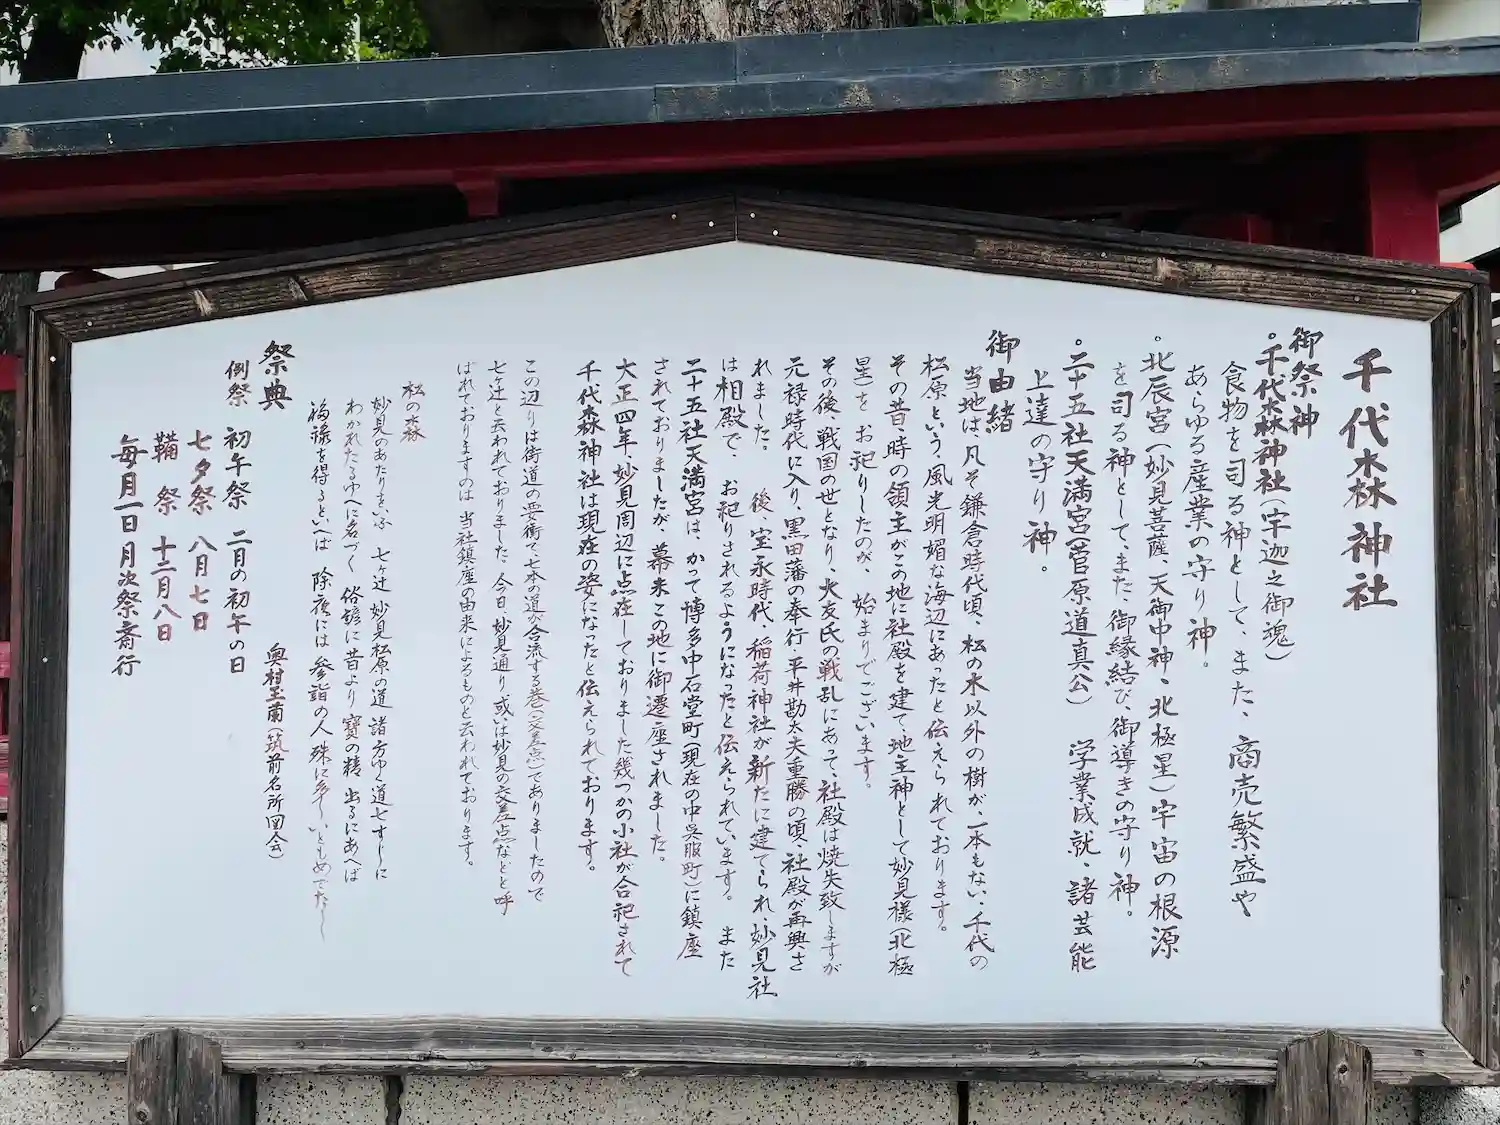 千代森神社
御祭神
。千代森神社(宇迦之御魂)
食物を司る神として、また、商売繁盛や
あらゆる産業の守り神。
。北辰宮(妙見菩薩、天御中神、北極星)宇宙の根源
を司る神として、また、御縁結び、御導きの守り神。
。二十五社天満宮(菅原道真公) 学業成就、諸芸能
上達の守り神。
御由緒
当地は、凡そ鎌倉時代頃、松の木以外の樹が、一本もない、千代の
松原という、風光明媚な海辺にあったと伝えられております。
その昔、時の領主がこの地に社殿を建て、地主神として妙見様(北極
星)を お祀りしたのが、始まりでございます。
その後、戦国の世となり、大友氏の戦乱にあって、社殿は焼失致しますが
元禄時代に入り、黒田藩の奉行・平井勘太夫重勝の頃、社殿が再興さ
れました。 後、宝永時代、稲荷神社が新たに建てられ、妙見社
は相殿で、お祀りされるようになったと伝えられています。 また
二十五社天満宮は、かって博多中石堂町(現在の中呉服町)に鎮座
されておりましたが、幕末この地に御遷座されました。
大正四年、妙見周辺に点在しておりました幾つかの小社が合祀されて
千代森神社は現在の姿になったと伝えられております。
この辺りは街道の要衝で、七本の道が合流する巷(交差点)でありましたので
七ヶ辻と云われておりました、今日、妙見通り或いは妙見の交差点などと呼
ばれておりますのは、当社鎮座の由来によるものと云われております。
松の森
妙見のあたりをいふ 七ヶ辻 妙見松原の道 諸方ゆく道七すじに
わかれたるゆへに名づく 俗諺に昔より 寶の精 出るにあへば
福禄を得るといへば 除夜には 参詣の人 殊に多し いともめでたし
奥村玉蘭(筑前名所図会)
祭典
例祭 初午祭 二月の初午の日
七夕祭 八月七日
鞴祭 十二月八日
毎月一日 月次祭斎行